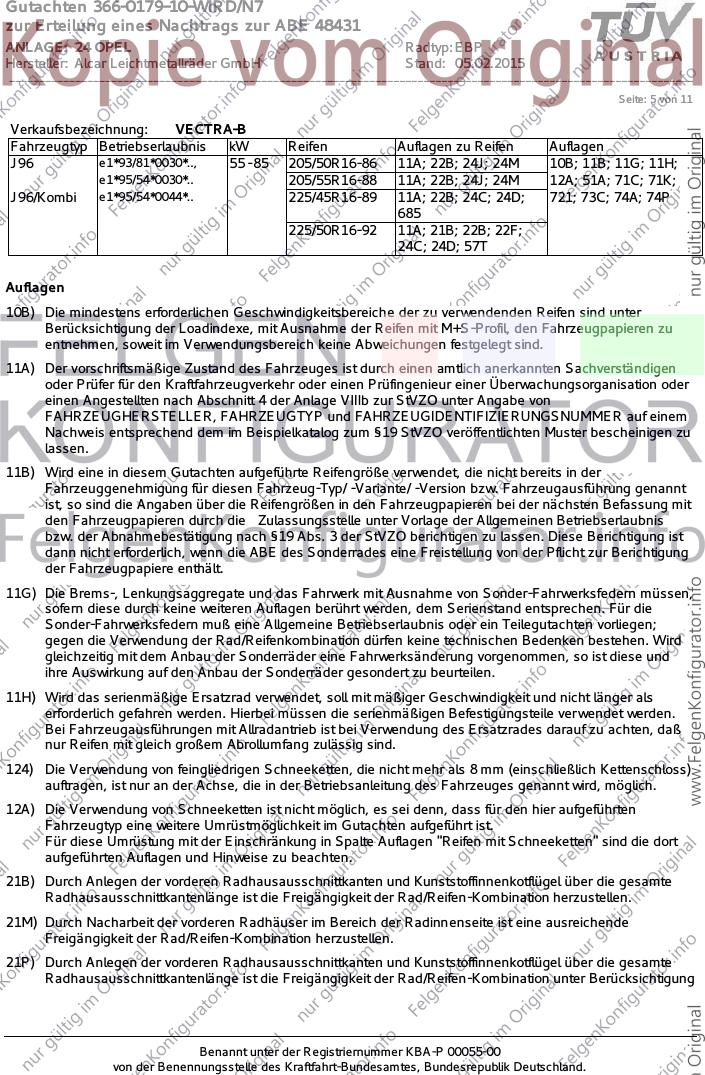 Gutachten 366-0179-10-WIRD/N7
zur Erteilung eines Nachtrags zur ABE 48431
ANLAGE: 24 OPEL Radtyp: EBP
Hersteller: Alcar Leichtmetallräder GmbH Stand: 05.02.2015
TÜV
AUSTRIA
Kopie vom Original
Seite: 5 von 11
Verkaufsbezeichnung: VECTRA-B
Fahrzeugtyp Betriebserlaubnis kW Reifen Auflagen zu Reifen Auflagen
J96 e1*93/81*0030*.., 55-85 205/50R16-86 11A; 22B; 24J; 24M 10B; 11B; 11G; 11H;
e1*95/54*0030*.. 205/55R16-88 11A; 22B; 24J; 24M 12A; 51A; 71C; 71K;
J96/Kombi e1*95/54*0044*.. 225/45R16-89 11A; 22B; 24C; 24D; 721; 73C; 74A; 74P
685
225/50R16-92 11A; 21B; 22B; 22F;
24C; 24D; 57T
Auflagen
10B) Die mindestens erforderlichen Geschwindigkeitsbereiche der zu verwendenden Reifen sind unter
Berücksichtigung der Loadindexe, mit Ausnahme der Reifen mit M+S-Profil, den Fahrzeugpapieren zu
entnehmen, soweit im Verwendungsbereich keine Abweichungen festgelegt sind.
11A) Der vorschriftsmäßige Zustand des Fahrzeuges ist durch einen amtlich anerkannten Sachverständigen
oder Prüfer für den Kraftfahrzeugverkehr oder einen Prüfingenieur einer Überwachungsorganisation oder
einen Angestellten nach Abschnitt 4 der Anlage VIIIb zur StVZO unter Angabe von
FAHRZEUGHERSTELLER, FAHRZEUGTYP und FAHRZEUGIDENTIFIZIERUNGSNUMMER auf einem
Nachweis entsprechend dem im Beispielkatalog zum §19 StVZO veröffentlichten Muster bescheinigen zu
lassen.
11B) Wird eine in diesem Gutachten aufgeführte Reifengröße verwendet, die nicht bereits in der
Fahrzeuggenehmigung für diesen Fahrzeug-Typ/ -Variante/ -Version bzw. Fahrzeugausführung genannt
ist, so sind die Angaben über die Reifengrößen in den Fahrzeugpapieren bei der nächsten Befassung mit
den Fahrzeugpapieren durch die Zulassungsstelle unter Vorlage der Allgemeinen Betriebserlaubnis
bzw. der Abnahmebestätigung nach §19 Abs. 3 der StVZO berichtigen zu lassen. Diese Berichtigung ist
dann nicht erforderlich, wenn die ABE des Sonderrades eine Freistellung von der Pflicht zur Berichtigung
der Fahrzeugpapiere enthält.
11G) Die Brems-, Lenkungsaggregate und das Fahrwerk mit Ausnahme von Sonder-Fahrwerksfedern müssen,
sofern diese durch keine weiteren Auflagen berührt werden, dem Serienstand entsprechen. Für die
Sonder-Fahrwerksfedern muß eine Allgemeine Betriebserlaubnis oder ein Teilegutachten vorliegen;
gegen die Verwendung der Rad/Reifenkombination dürfen keine technischen Bedenken bestehen. Wird
gleichzeitig mit dem Anbau der Sonderräder eine Fahrwerksänderung vorgenommen, so ist diese und
ihre Auswirkung auf den Anbau der Sonderräder gesondert zu beurteilen.
11H) Wird das serienmäßige Ersatzrad verwendet, soll mit mäßiger Geschwindigkeit und nicht länger als
erforderlich gefahren werden. Hierbei müssen die serienmäßigen Befestigungsteile verwendet werden.
Bei Fahrzeugausführungen mit Allradantrieb ist bei Verwendung des Ersatzrades darauf zu achten, daß
nur Reifen mit gleich großem Abrollumfang zulässig sind.
124) Die Verwendung von feingliedrigen Schneeketten, die nicht mehr als 8 mm (einschließlich Kettenschloss)
auftragen, ist nur an der Achse, die in der Betriebsanleitung des Fahrzeuges genannt wird, möglich.
12A) Die Verwendung von Schneeketten ist nicht möglich, es sei denn, dass für den hier aufgeführten
Fahrzeugtyp eine weitere Umrüstmöglichkeit im Gutachten aufgeführt ist.
Für diese Umrüstung mit der Einschränkung in Spalte Auflagen "Reifen mit Schneeketten" sind die dort
aufgeführten Auflagen und Hinweise zu beachten.
21B) Durch Anlegen der vorderen Radhausausschnittkanten und Kunststoffinnenkotflügel über die gesamte
Radhausausschnittkantenlänge ist die Freigängigkeit der Rad/Reifen-Kombination herzustellen.
21M) Durch Nacharbeit der vorderen Radhäuser im Bereich der Radinnenseite ist eine ausreichende
Freigängigkeit der Rad/Reifen-Kombination herzustellen.
21P) Durch Anlegen der vorderen Radhausausschnittkanten und Kunststoffinnenkotflügel über die gesamte
Radhausausschnittkantenlänge ist die Freigängigkeit der Rad/Reifen-Kombination unter Berücksichtigung
Benannt unter der Registriernummer KBA-P 00055-00
von der Benennungsstelle des Kraftfahrt-Bundesamtes, Bundesrepublik Deutschland.
FELGEN
KONFIGURATOR
FelgenKonfigurator.info
nur gültig im Original
www.FelgenKonfigurator.info